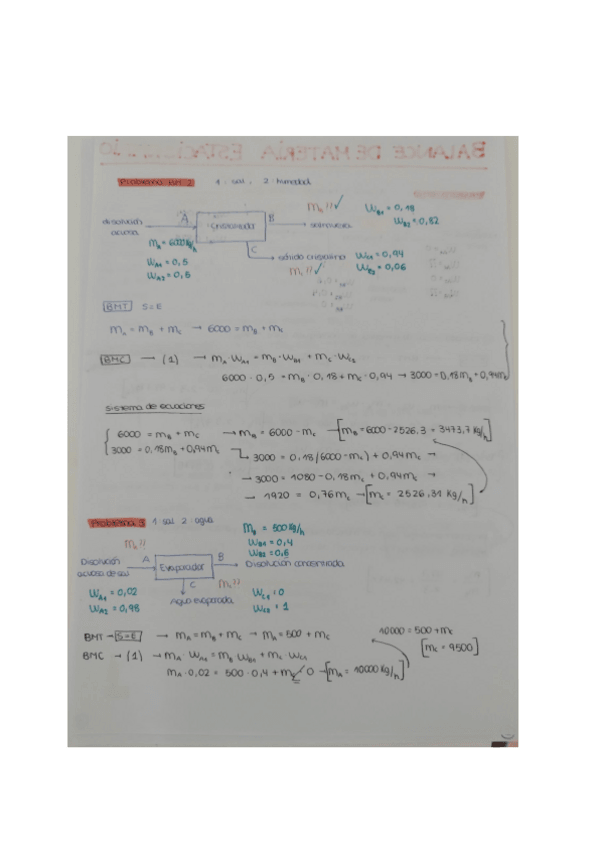 BALANCE DE MATERIA ESTACIONARIO
Problema BM 2   1: sal, 2: humedad
disolución acuosa   A   Cristalizador   B   salmuera
m_B //✓   W_B1 = 0,18
W_B2 = 0,82
m_A = 6000 kg/h
W_A1 = 0,5
W_A2 = 0,5
C   sólido cristalino   W_C1 = 0,94
m_C //✓   W_C2 = 0,06
BMT   S=E
m_A = m_B + m_C → 6000 = m_B + m_C
BMC → (1) → m_A W_A1 = m_B · W_B1 + m_C · W_C1
6000 · 0,5 = m_B · 0,18 + m_C · 0,94 → 3000 = 0,18m_B + 0,94m_C
Sistema de ecuaciones
6000 = m_B + m_C → m_B = 6000 - m_C → [m_B = 6000 - 2526,3 = 3473,7 kg/h]
3000 = 0,18m_B + 0,94m_C   3000 = 0,18(6000 - m_C) + 0,94m_C →
→ 3000 = 1080 - 0,18m_C + 0,94m_C →
→ 1920 = 0,76m_C → [m_C = 2526,31 kg/h]
Problema 3   1: sal 2: agua
m_B = 500 kg/h
W_B1 = 0,4
W_B2 = 0,6
m_A //
Disolución acuosa de sal   A   Evaporador   B   Disolución concentrada
W_A1 = 0,02
W_A2 = 0,98
C   m_C //
Agua evaporada   W_C1 = 0
W_C2 = 1
BMT → S=E → m_A = m_B + m_C → m_A = 500 + m_C   10000 = 500 + m_C
[m_C = 9500]
BMC → (1) → m_A · W_A1 = m_B W_B1 + m_C · W_C1
m_A · 0,02 = 500 · 0,4 + m_C · 0 → [m_A = 10000 kg/h]